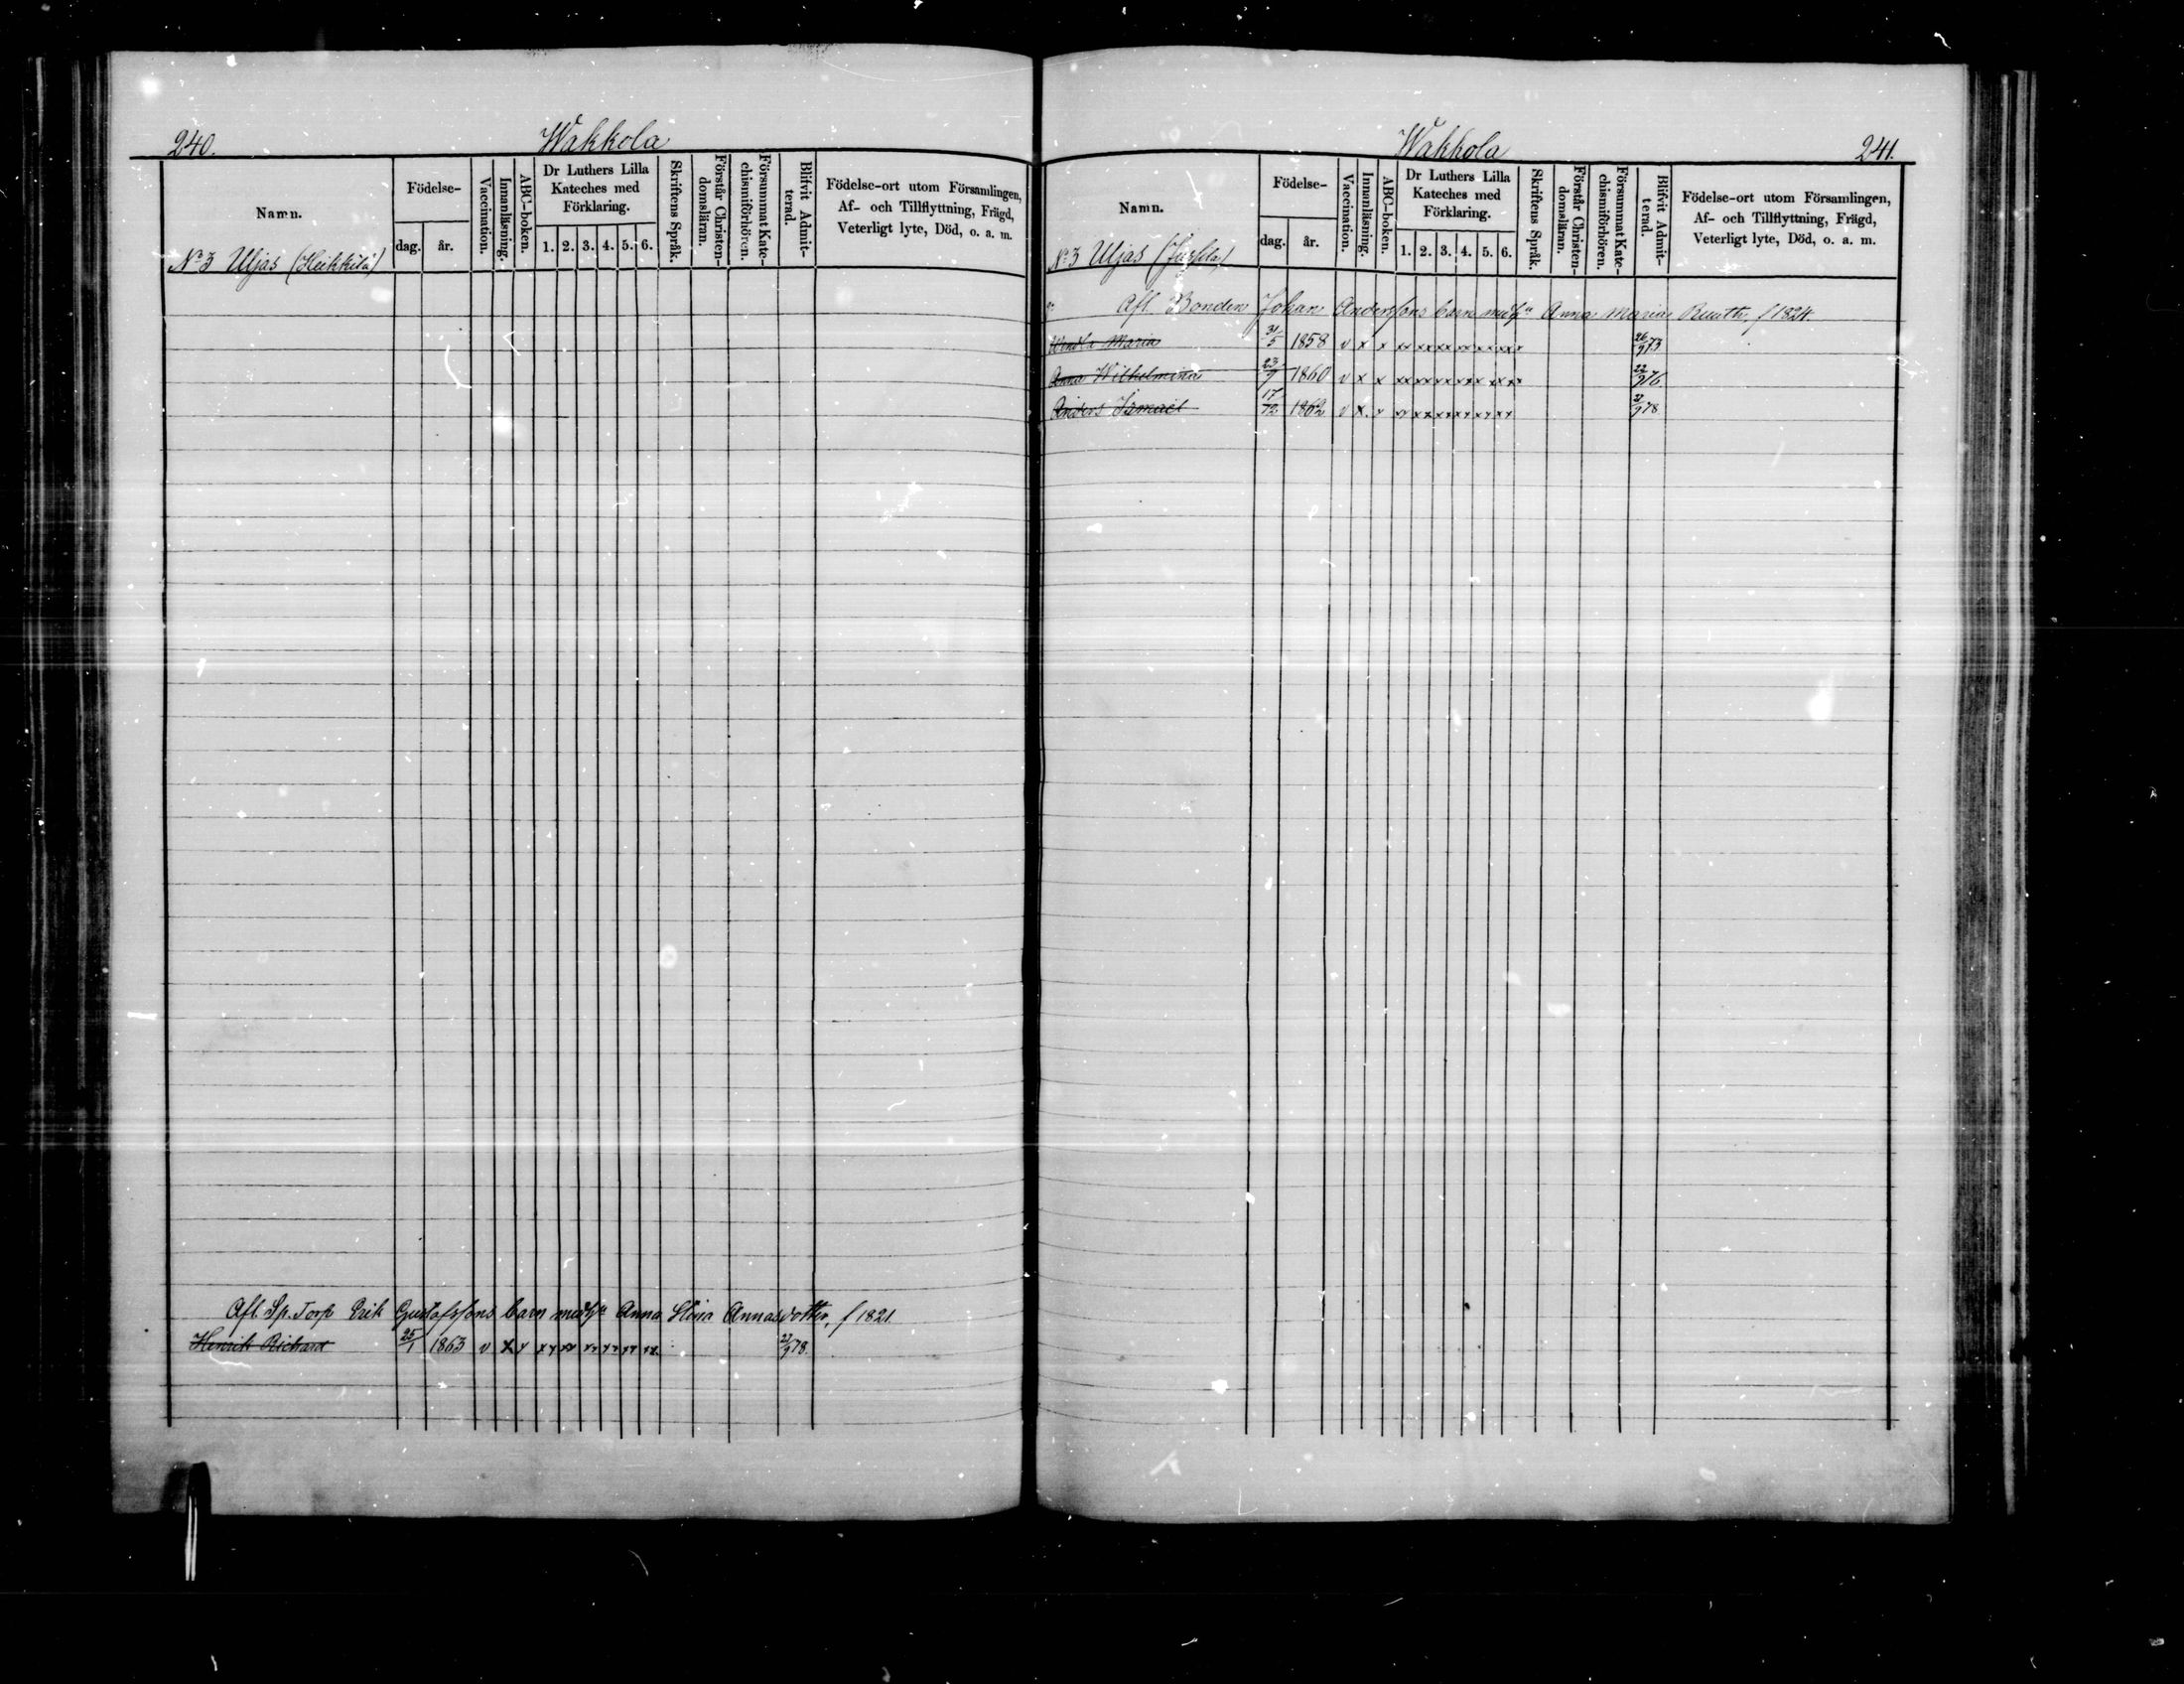 240.
Wakkola
Namn.
Födelse-
dag.
år.
Vaccination.
Innanläsning.
ABC-boken.
Dr Luthers Lilla
Kateches med
Förklaring.
1. 2. 3. 4. 5. 6.
Skriftens Språk.
Förstår Christen-
domsläran.
Försummat Kate-
chismiförhören.
Blifvit Admit-
terad.
Födelse-ort utom Församlingen,
Af- och Tillflyttning, Frägd,
Veterligt lyte, Död, o. a. m.
No 3 Uljas (Heikkilä)
Afl. Sp. Torp Erik Gustafssons barn med Anna Annasdotter, f 1821
Henrik Richard 25/1 1863 v x x xx xx xx xx xx xx 22/9 78.
Wakkola
241.
Namn.
Födelse-
dag.
år.
Vaccination.
Innanläsning.
ABC-boken.
Dr Luthers Lilla
Kateches med
Förklaring.
1. 2. 3. 4. 5. 6.
Skriftens Språk.
Förstår Christen-
domsläran.
Försummat Kate-
chismiförhören.
Blifvit Admit-
terad.
Födelse-ort utom Församlingen,
Af- och Tillflyttning, Frägd,
Veterligt lyte, Död, o. a. m.
No 3 Uljas
Afl. Bonden Johan Anderssons barn med Anna Maria f 1824
Wendla Maria 31/5 1858 v x x xx xx xx xx xx xx 73
Anna Wilhelmina 23/9 1860 v x x xx xx xx xx xx xx 22/9 76
Anders Ismael 17/12 1862 v x x xx xx xx xx xx xx 78